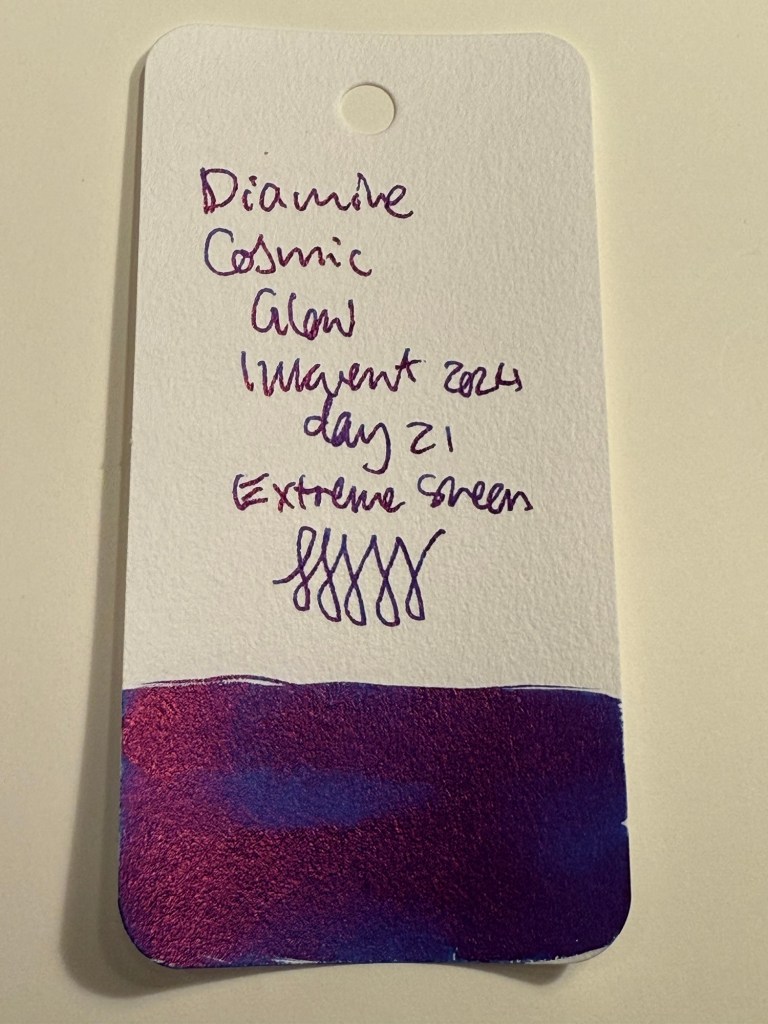 Diamine
Cosmic
Glow
Inkvent 2024
day 21
Extreme Sheen